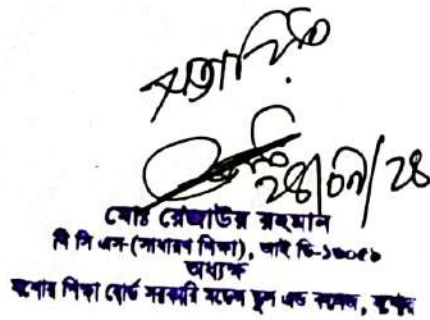 সত্যায়িত
২৪/০৭/২৪
মোঃ রেজাউর রহমান
বি সি এস-(সাধারণ শিক্ষা), আই ডি-১৩০৫৮
অধ্যক্ষ
যশোর শিক্ষা বোর্ড সরকারি মডেল স্কুল এন্ড কলেজ, যশোর